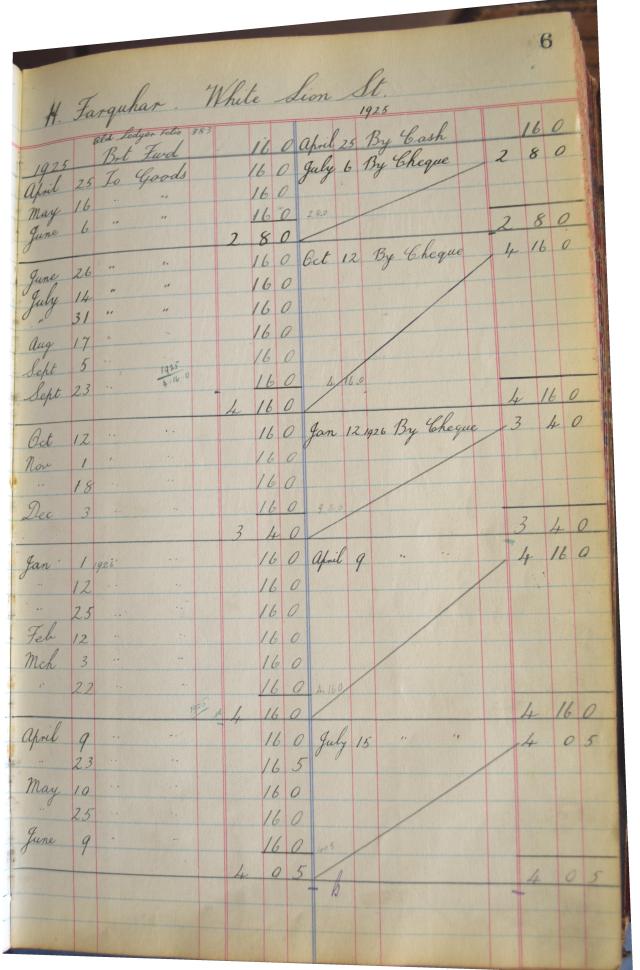 6
H. Farquhar. White Lion St.
1925
Old Ledger Folio 883
Brt Fwd 16 0 April 25 By Cash 16 0
1925
April 25 To Goods 16 0 July 6 By Cheque 2 8 0
May 16 " " 16 0
June 6 " " 16 0 2 8 0
2 8 0 2 8 0
June 26 " " 16 0 Oct 12 By Cheque 4 16 0
July 14 " " 16 0
" 31 " " 16 0
Aug 17 " " 16 0
Sept 5 " " 16 0
1925
4.16.0
Sept 23 16 0 4 16 0
4 16 0 4 16 0
Oct 12 " " 16 0 Jan 12 1926 By Cheque 3 4 0
Nov 1 " " 16 0
" 18 " " 16 0
Dec 3 " " 16 0
3 4 0 3 4 0
Jan 1 1926 " " 16 0 April 9 " " 4 16 0
" 12 " " 16 0
" 25 " " 16 0
Feb 12 " " 16 0
Mch 3 " " 16 0
" 22 " " 16 0 4.16.0
4 16 0 4 16 0
April 9 " " 16 0 July 15 " " 4 0 5
" 23 " " 16 5
May 10 " " 16 0
" 25 " " 16 0
June 9 " " 16 0
4 0 5 4 0 5